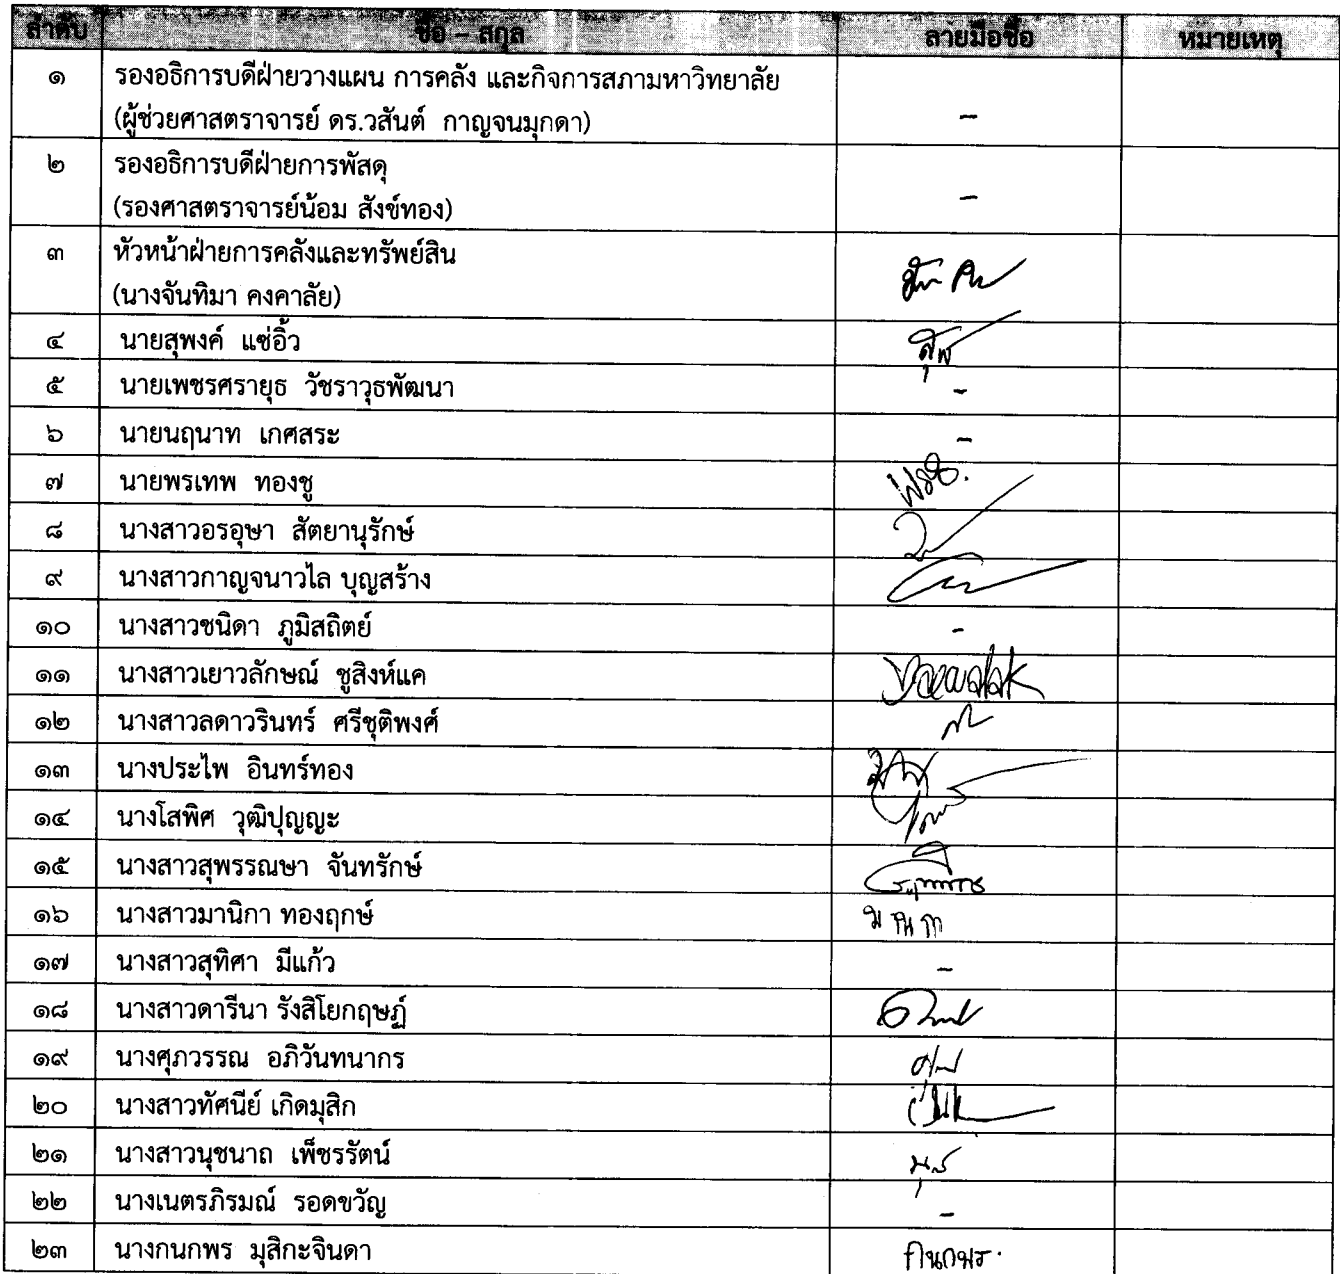 ลำดับ ชื่อ – สกุล ลายมือชื่อ หมายเหตุ
๑ รองอธิการบดีฝ่ายวางแผน การคลัง และกิจการสภามหาวิทยาลัย
(ผู้ช่วยศาสตราจารย์ ดร.วสันต์ กาญจนมุกดา) –
๒ รองอธิการบดีฝ่ายการพัสดุ
(รองศาสตราจารย์น้อม สังข์ทอง) –
๓ หัวหน้าฝ่ายการคลังและทรัพย์สิน
(นางจันทิมา คงคาลัย)
๔ นายสุพงค์ แซ่อิ้ว
๕ นายเพชรศรายุธ วัชราวุธพัฒนา -
๖ นายนฤนาท เกศสระ -
๗ นายพรเทพ ทองชู
๘ นางสาวอรอุษา สัตยานุรักษ์
๙ นางสาวกาญจนาวไล บุญสร้าง
๑๐ นางสาวชนิดา ภูมิสถิตย์ -
๑๑ นางสาวเยาวลักษณ์ ชูสิงห์แค Yaowalak
๑๒ นางสาวลดาวรินทร์ ศรีชุติพงศ์
๑๓ นางประไพ อินทร์ทอง
๑๔ นางโสพิศ วุฒิปุญญะ
๑๕ นางสาวสุพรรณษา จันทรักษ์
๑๖ นางสาวมานิกา ทองฤกษ์
๑๗ นางสาวสุทิศา มีแก้ว -
๑๘ นางสาวดารีนา รังสิโยกฤษฏ์
๑๙ นางศุภวรรณ อภิวันทนากร
๒๐ นางสาวทัศนีย์ เกิดมุสิก
๒๑ นางสาวนุชนาถ เพ็ชรรัตน์ นุช
๒๒ นางเนตรภิรมณ์ รอดขวัญ -
๒๓ นางกนกพร มุสิกะจินดา กนกพร